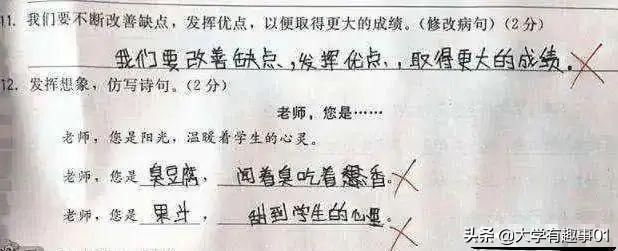 11. 我们要不断改善缺点，发挥优点，以便取得更大的成绩。(修改病句)(2分)
我们要改善缺点，发挥优点，取得更大的成绩。
12. 发挥想象，仿写诗句。(2分)
老师，您是……
老师，您是阳光，温暖着学生的心灵。
老师，您是臭豆腐，闻着臭吃着香。
老师，您是果汁，甜到学生的心里。
头条 @大学有趣事01